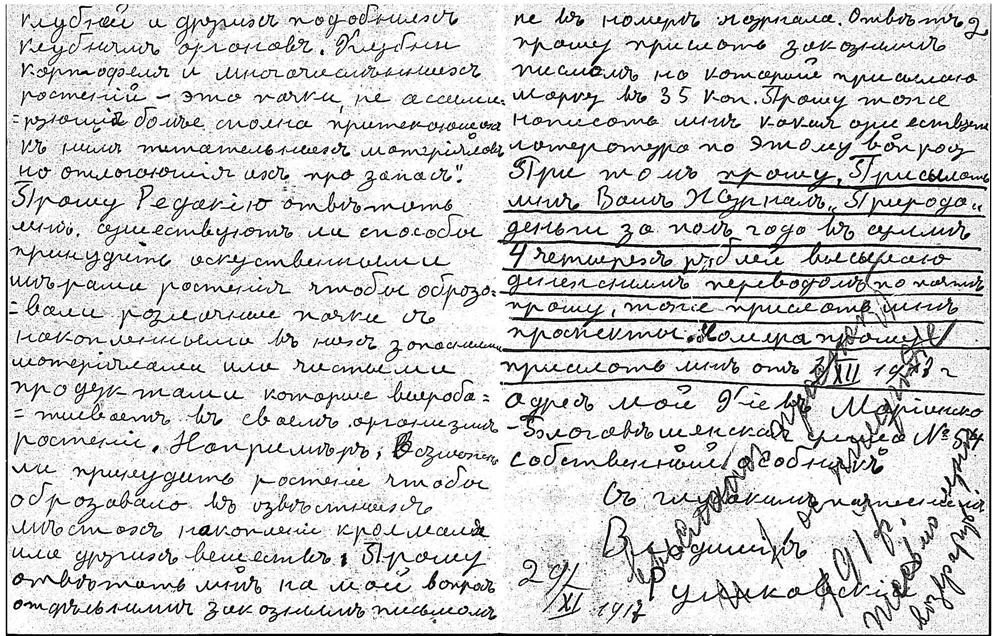 клубней и другихъ подобныхъ
клубнямъ органовъ. Клубни
картофеля и многочисленныхъ
растеній – это почки, не ассими-
=рующія болѣе сполна притекающихъ
къ нимъ питательныхъ матеріяловъ
но отлогающія ихъ про запасъ".
Прошу Редакію отвѣтить
мнѣ. существуютъ ли способы
принудить искуственными
мѣрами растенія чтобы образо=
=вали различные почки съ
накопленными въ нихъ запасными
матеріалами или чистыми
продуктами которые выроба=
=тываетъ въ своемъ организмѣ
растеніе. Напримѣръ: Возможно
ли принудить растеніе чтобы
образавало въ извѣстныхъ
мѣстахъ накопленіе крахмала
или другихъ веществъ; Прошу
отвѣтить мнѣ на мой вопросъ
отдѣльнымъ заказнымъ письмомъ
2
не въ номерѣ журнала. Отвѣтъ
прошу прислать заказнымъ
писмомъ на который присылаю
марку въ 35 коп. Прошу тоже
написать мнѣ какая существуетъ
литература по этому вопросу
При томъ прошу, Присылать
мнѣ Вашъ Журналъ „Природа„
деньги за полъ года въ суммѣ
4 четырехъ рублей высылаю
денежнымъ переводомъ по почтѣ
прошу, тоже прислать мнѣ
проспекты. Номера прошу
прислать мнѣ отъ XII 19 г
Адресъ мой Кіевъ Маріинско
-Благовѣщенская улица №
собственный
Съ глубокимъ почтеніемъ
Владиміръ
29/XI 1912